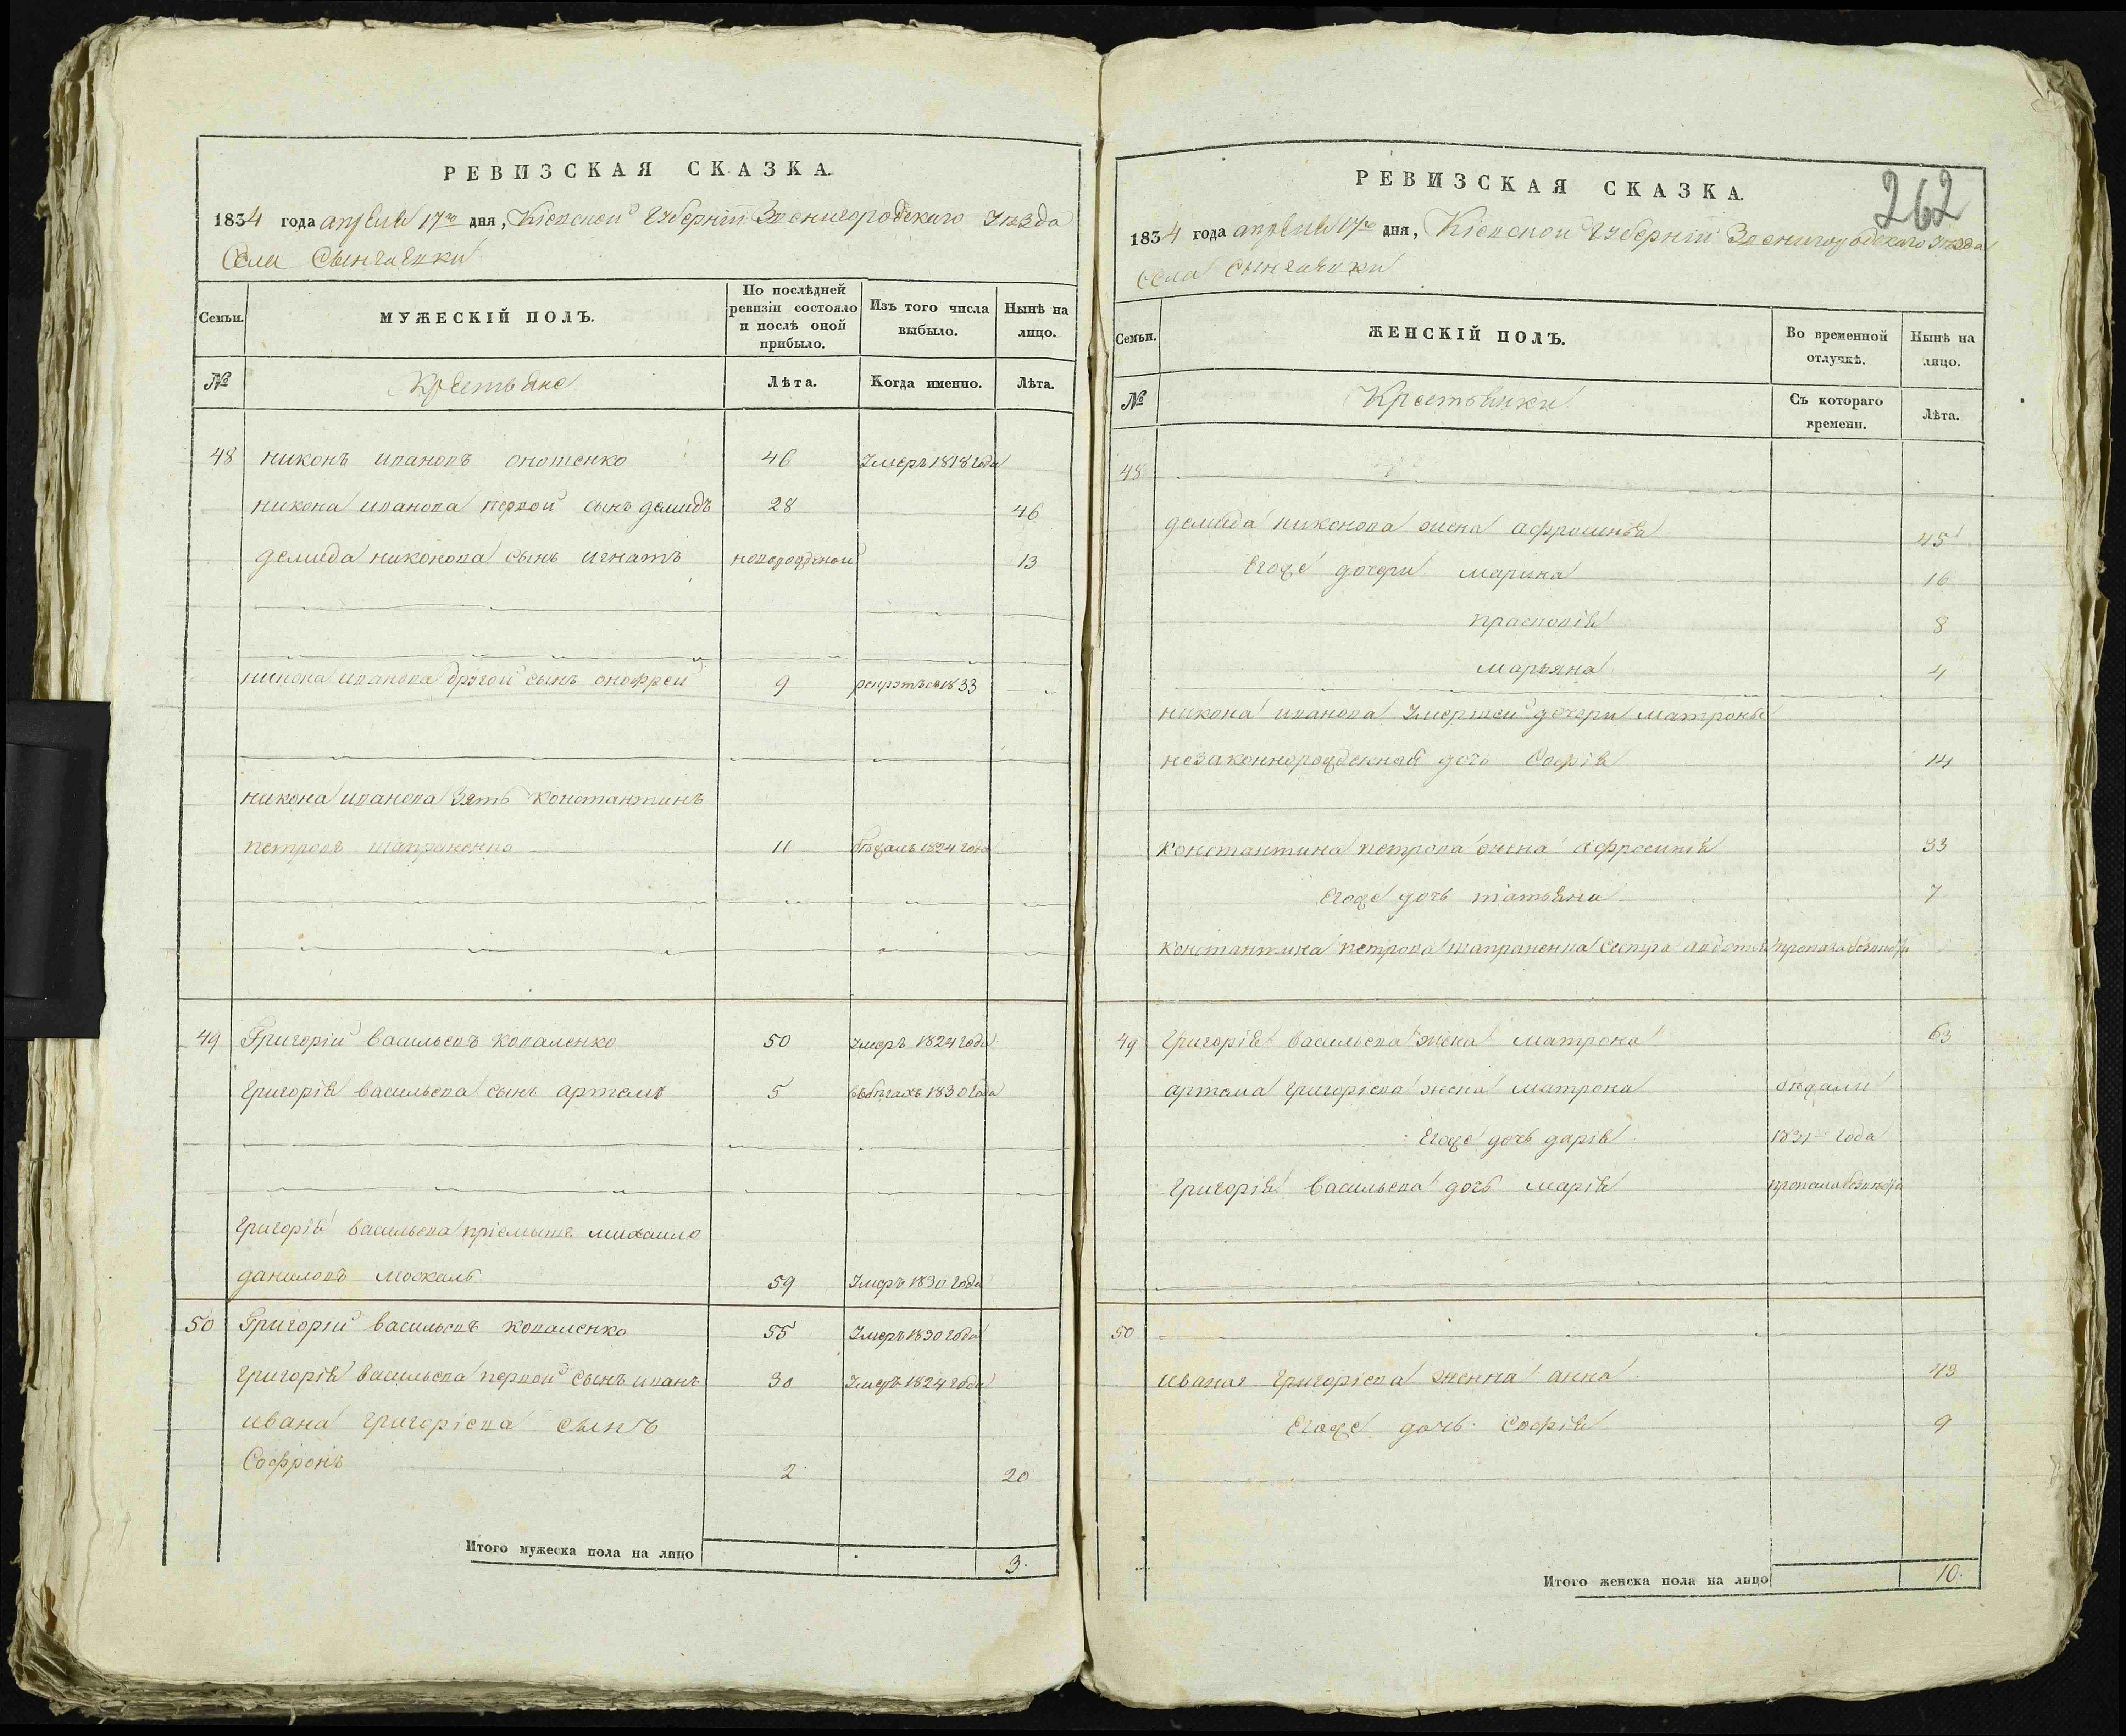 РЕВИЗСКАЯ СКАЗКА.
1834 года апреля 17го дня, Кіевской Губерніи Звенигородскаго Уезда
Села
Семьи. МУЖЕСКІЙ ПОЛЪ. По послѣдней ревизіи состояло и послѣ оной прибыло. Изъ того числа выбыло. Нынѣ на лицо.
№ Крестьяне Лѣта. Когда именно. Лѣта.
48 никонъ ивановъ онотенко 46 Умеръ 1818 года
никона иванова первой сынъ демидъ 28 46
демида никонова сынъ игнатъ новорожденой 13
никона иванова другой сынъ онофрей 9 1833
никона иванова зять константинъ
петровъ 11 бежалъ 1824 года
49 Григорій васильевъ коваленко 50 умеръ 1824 года
григорія васильева сынъ артемъ 5 вбегахъ 1830 года
григорія васильева пріемышъ михаило
даниловъ москаль 59 Умеръ 1830 года
50 Григорій васильевъ коваленко 55 Умеръ 1830 года
григорія васильева первой сынъ иванъ 30 Умеръ 1824 года
ивана григоріева сынъ
Софронъ 2 20
Итого мужеска пола на лицо 3.
262
РЕВИЗСКАЯ СКАЗКА.
1834 года апреля 17го дня, Кіевской Губерніи Звенигородскаго Уезда
села
Семьи. ЖЕНСКІЙ ПОЛЪ. Во временной отлучкѣ. Нынѣ на лицо.
№ Крестьянки Съ котораго времени. Лѣта.
48
демида никонова жена афросинья 45
Егоже дочери марина 16
прасковія 8
марьяна 4
никона иванова Умершей дочери матроны
незаконнорожденная дочь Софія 14
константина петрова жена афросинія 33
Егоже дочь татьяна 7
константина петрова сестра авдотья пропала
49 Григорія васильева жена матрона 63
артема григоріева жена матрона бежали
Егоже дочь дарія 1831 года
Григорія васильева дочь марія пропала
50
ивана григоріева женна анна 43
Егоже дочь Софія 9
Итого женска пола на лицо 10.